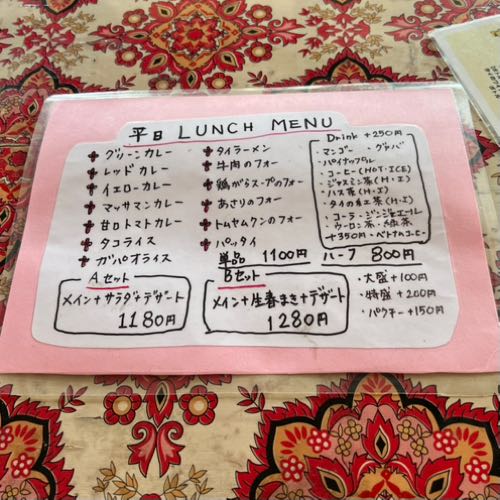 平日 LUNCH MENU
グリーンカレー
レッドカレー
イエローカレー
マッサマンカレー
甘口トマトカレー
タコライス
ガパオライス
タイラーメン
牛肉のフォー
鶏がらスープのフォー
あさりのフォー
トムヤムクンのフォー
パッタイ
単品 1100円 ハーフ 800円
Drink +250円
マンゴー ・グァバ
・パイナップル
・コーヒー(HOT・ICE)
・ジャスミン茶(H・I)
・ハス茶(H・I)
・タイの紅茶(H・I)
・コーラ・ジンジャエール
・ウーロン茶・緑茶
+350円・ベトナムコーヒー
Aセット
メイン+サラダ+デザート
1180円
Bセット
メイン+生春まき+デザート
1280円
・大盛+100円
・特盛+200円
・パクチー+150円